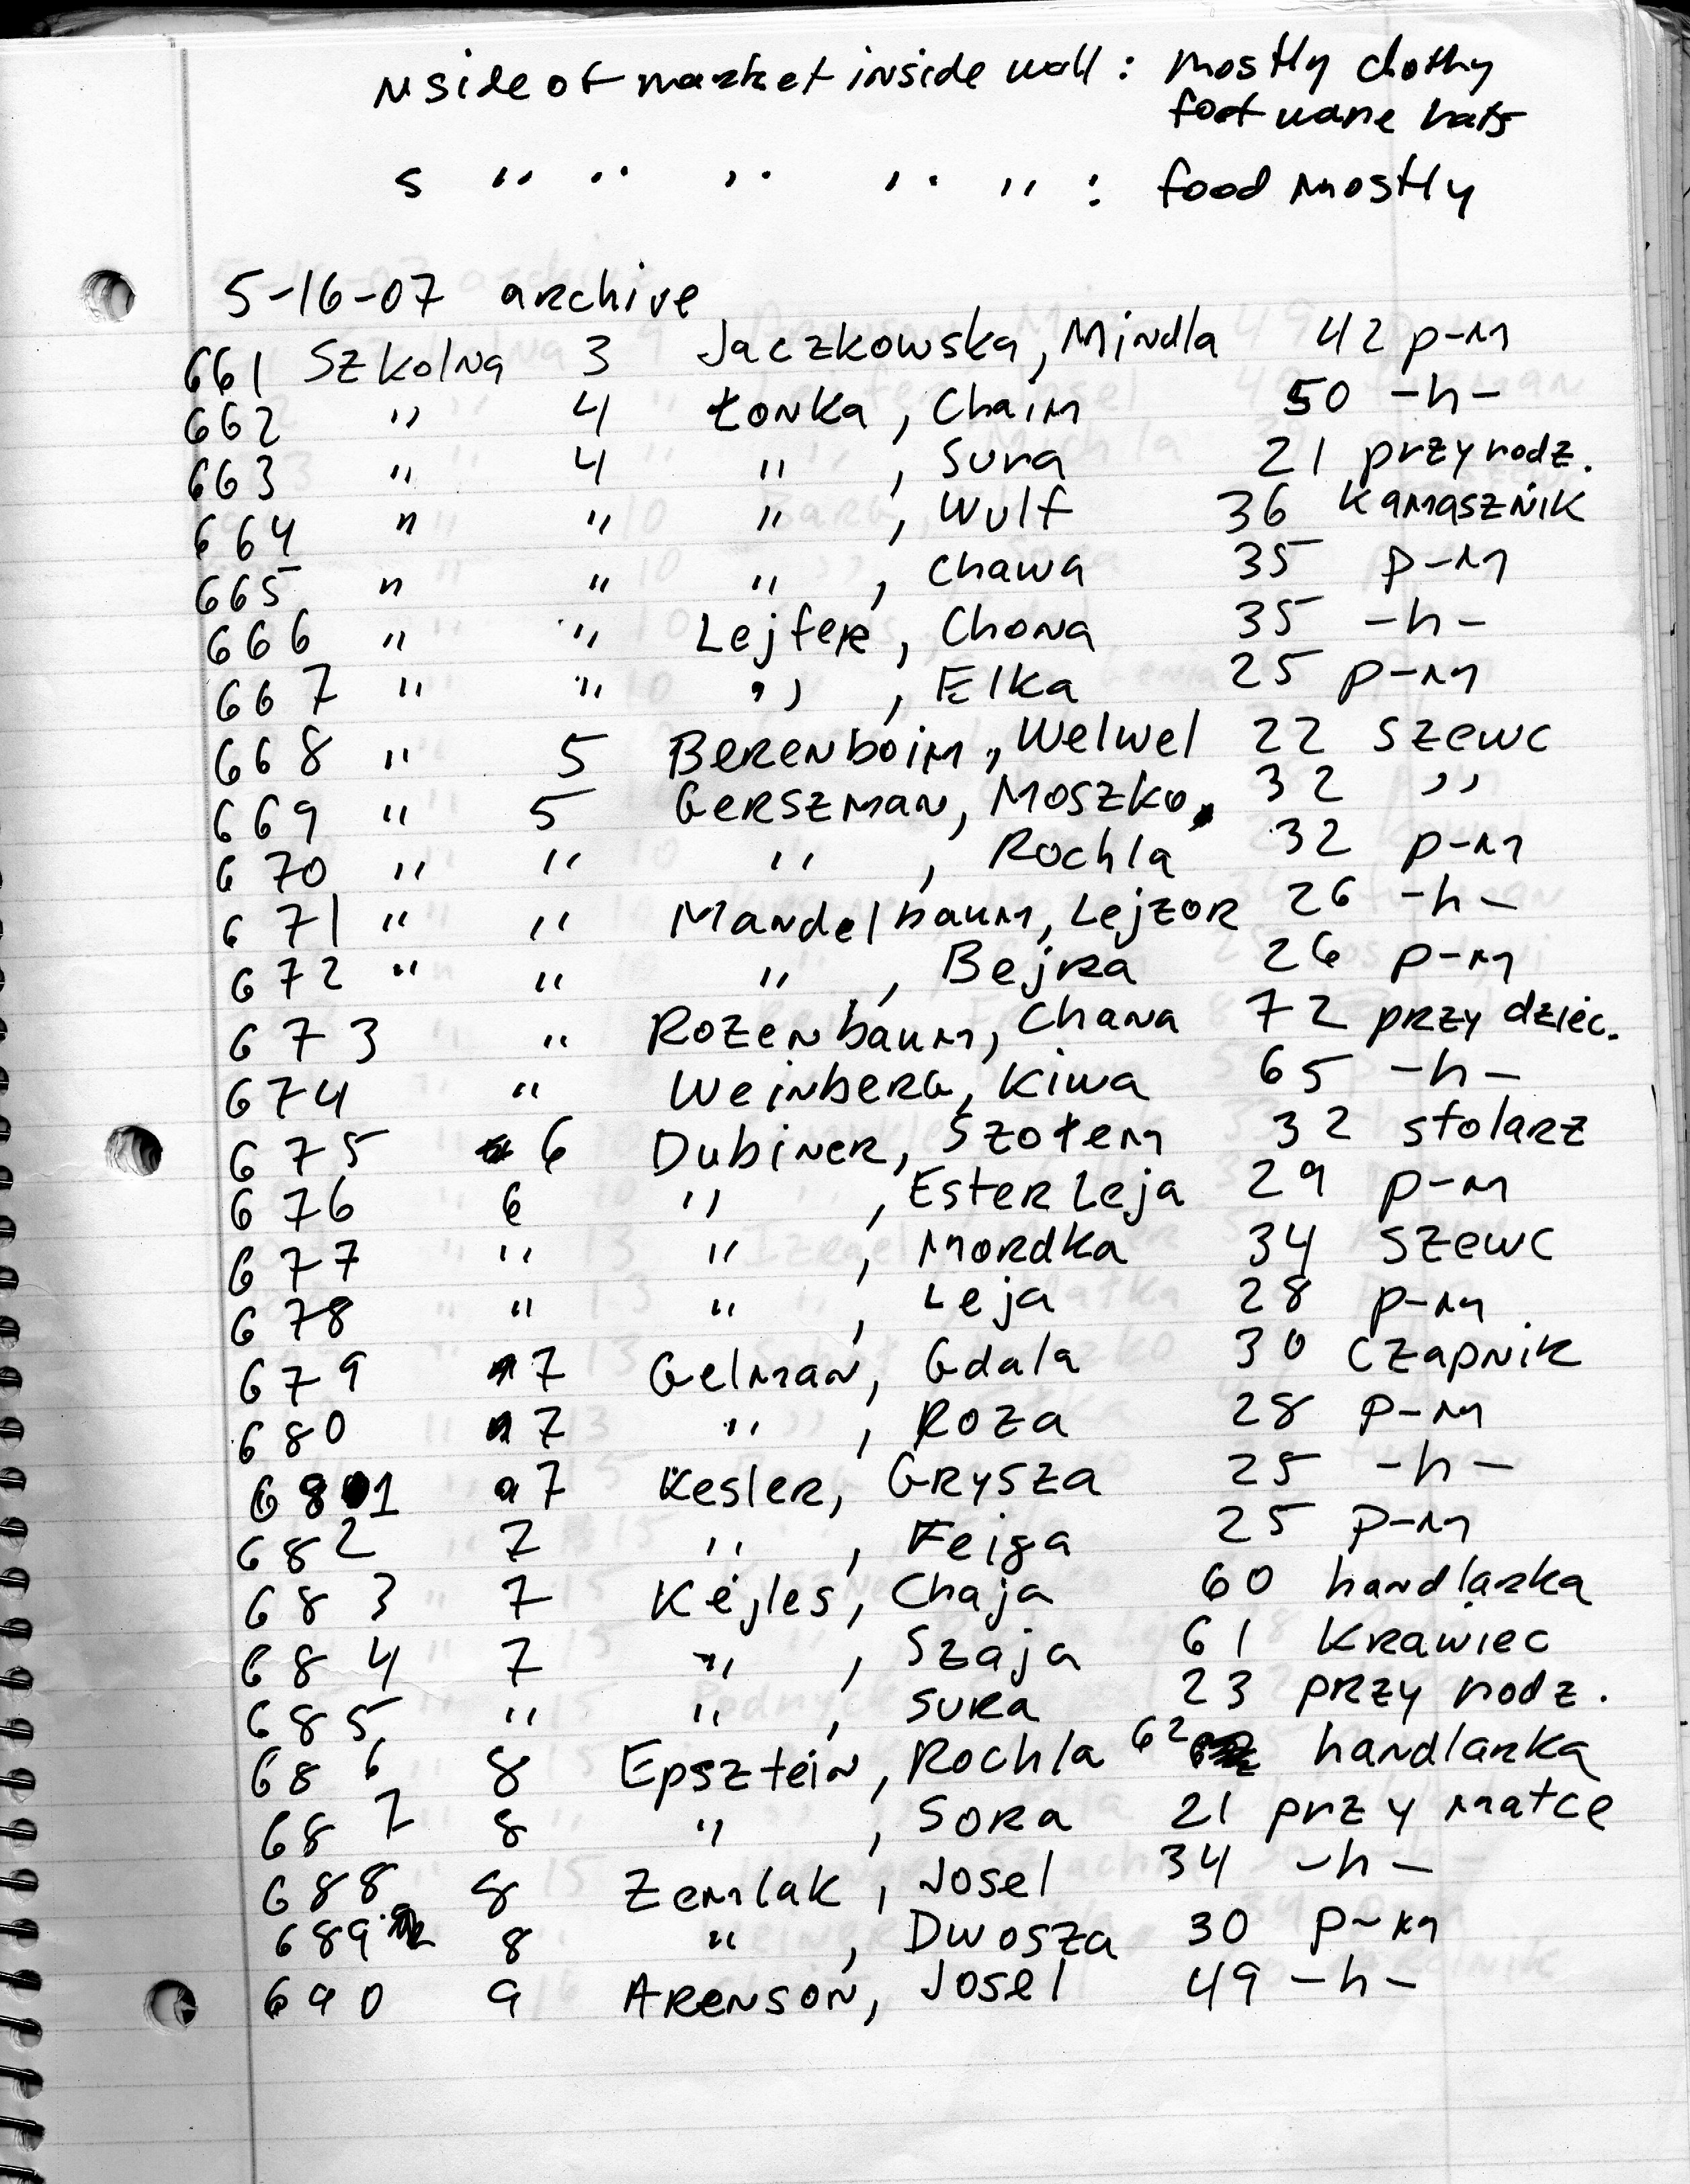 N side of market inside wall : mostly clothy
footware hats
S " " " " " : food mostly
5-16-07 archive
661 Szkolna 3 Jaczkowska, Mindla 42 p-m
662 " 4 Łonka, Chaim 50 -h-
663 " 4 " , Sura 21 przy rodz.
664 " " " , Wulf 36 kamasznik
665 " " " , Chawa 35 p-m
666 " " Lejfer, Chona 35 -h-
667 " " " , Elka 25 p-m
668 " 5 Berenboim, Welwel 22 szewc
669 " 5 Gerszman, Moszko, 32 "
670 " " " , Rochla 32 p-m
671 " " Mandelbaum, Lejzor 26 -h-
672 " " " , Bejra 26 p-m
673 " Rozenbaum, Chana 72 przy dziec.
674 " Weinberg, Kiwa 65 -h-
675 6 Dubiner, Szołem 32 stolarz
676 6 " , Ester Leja 29 p-m
677 " " , Mordka 34 szewc
678 " " , Leja 28 p-m
679 "7 Gelman, Gdala 30 czapnik
680 "7 " , Roza 28 p-m
681 "7 Kesler, Grysza 25 -h-
682 7 " , Feiga 25 p-m
683 7 Kejles, Chaja 60 handlarka
684 7 " , Szaja 61 krawiec
685 " " , Sura 23 przy rodz.
686 8 Epsztein, Rochla 62 handlarka
687 8 " , Sora 21 przy matce
688 8 Zemlak, Josel 34 -h-
689 8 " , Dwosza 30 p-m
690 9 Arenson, Josel 49 -h-